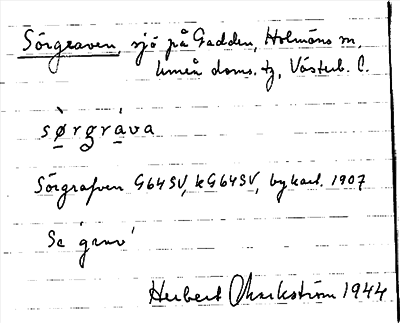 Sörgraven, sjö på Gadden, Holmöns sn,
Umeå doms. tg, Västerb. l.
sø̀rgráva
Sörgrafven G64SV, kG64SV, bykart. 1907
Se 'grav'
Herbert Markström 1944